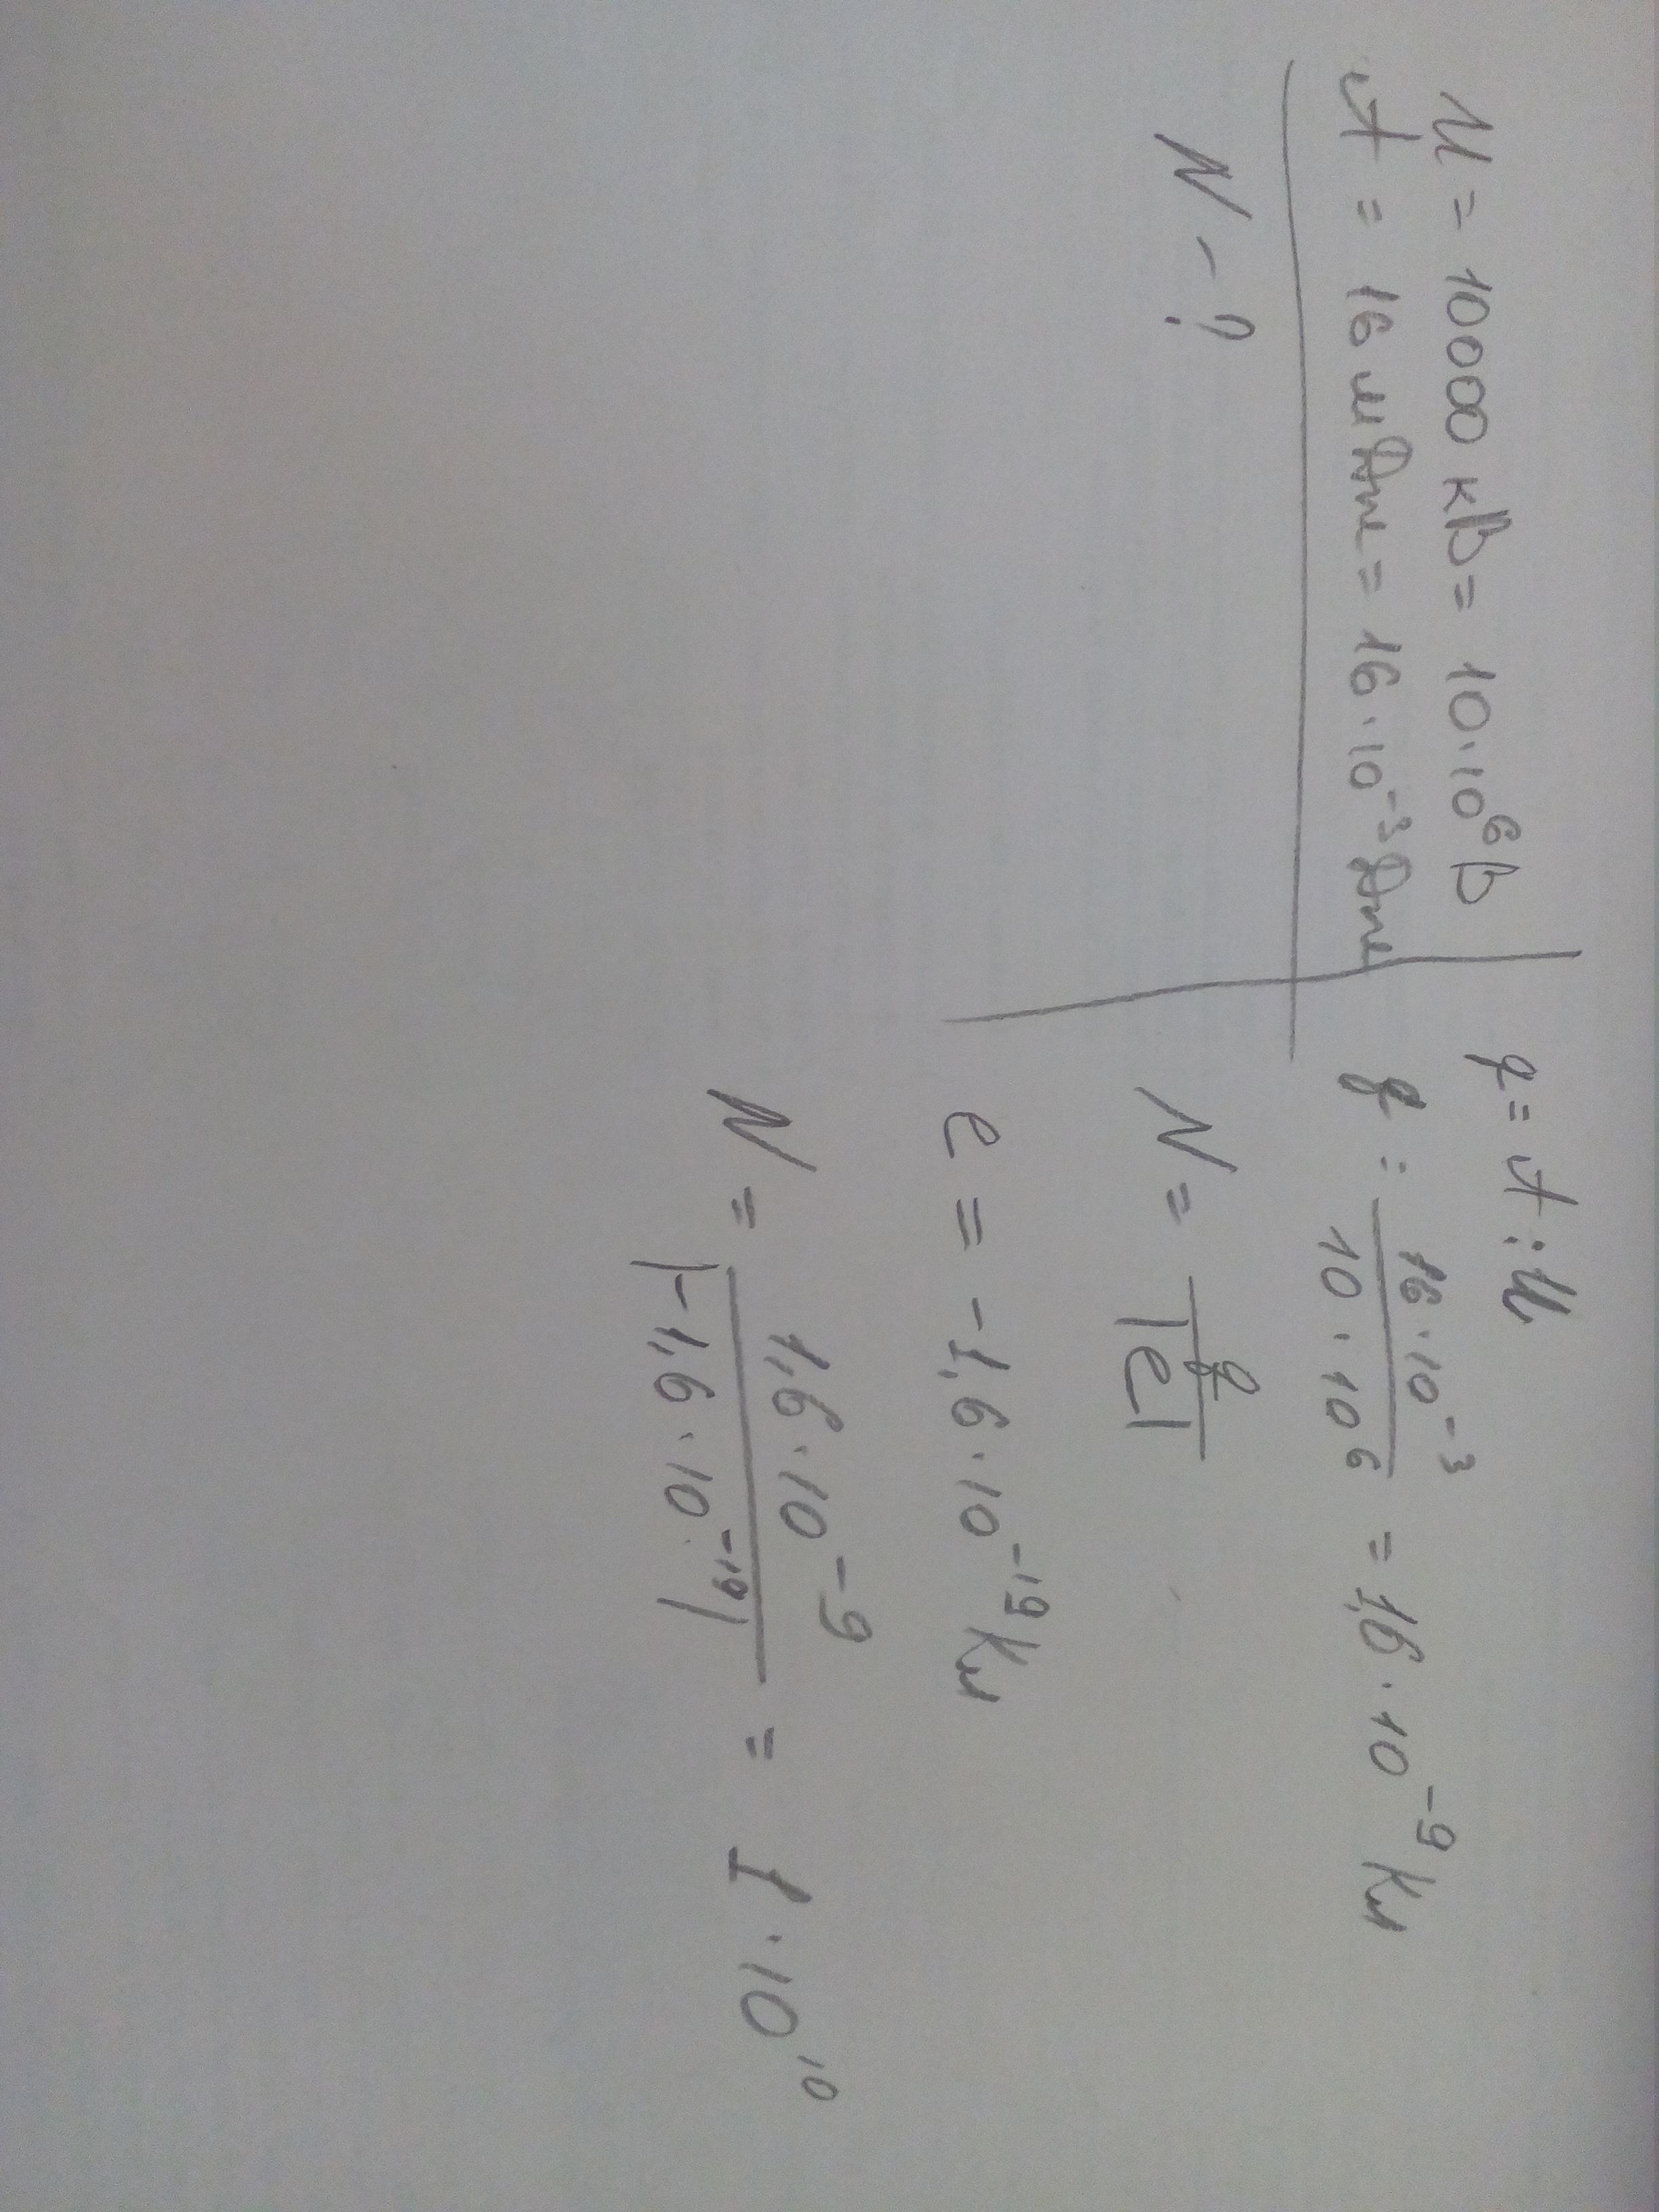 U = 10000 кВ = 10·10⁶ В
A = 16 мДж = 16·10⁻³ Дж
N - ?
q = A : U
q = 16·10⁻³ / 10·10⁶ = 1,6·10⁻⁹ Кл
N = q / |e|
e = -1,6·10⁻¹⁹ Кл
N = 1,6·10⁻⁹ / |-1,6·10⁻¹⁹| = 1·10¹⁰